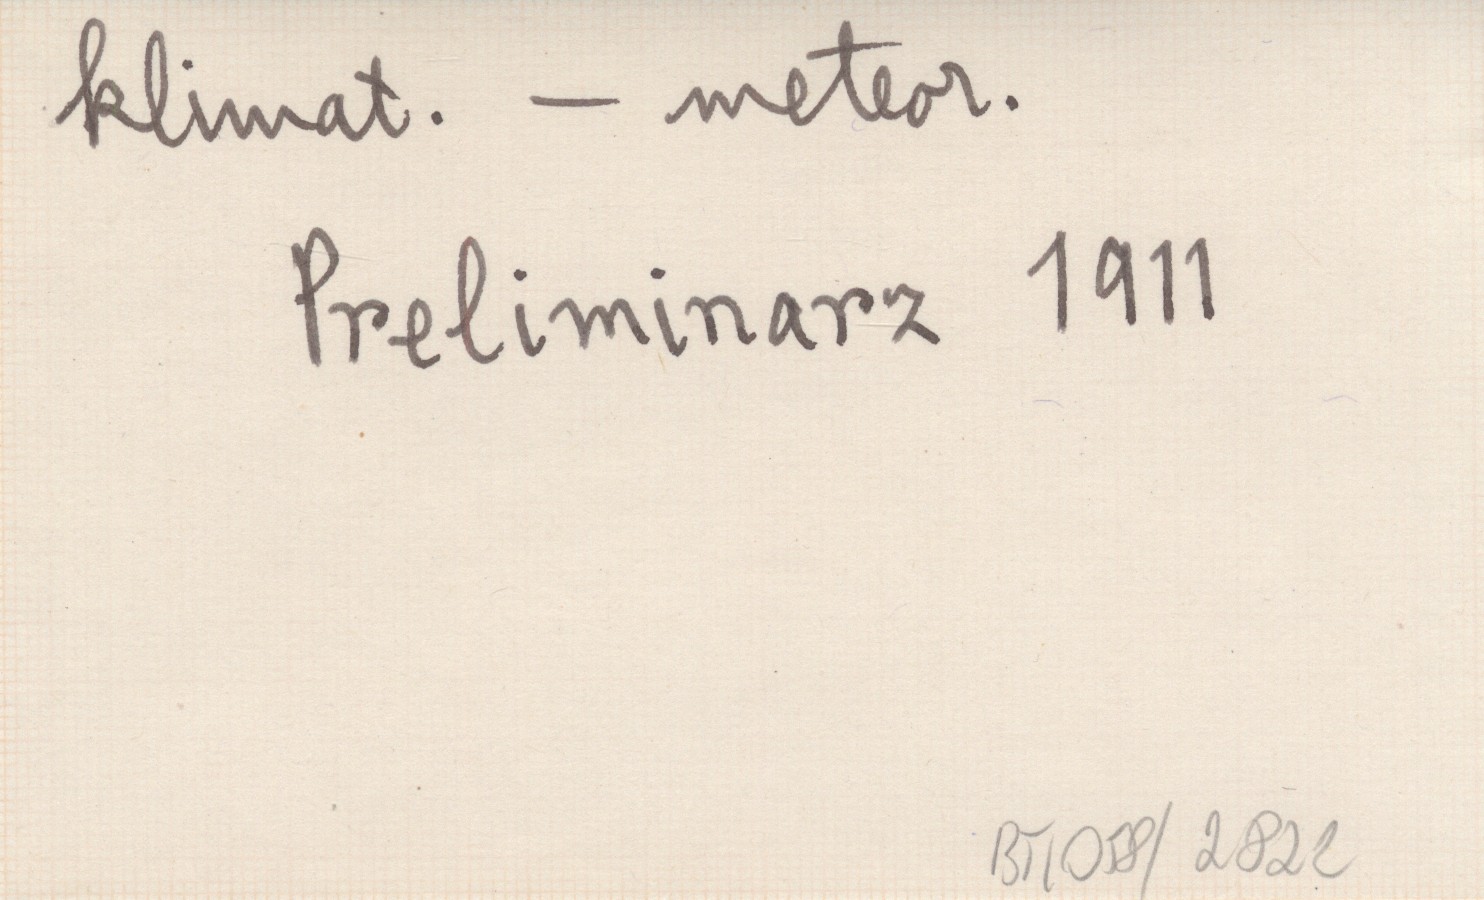 klimat. — meteor.
Preliminarz 1911
BT/058/ 2822